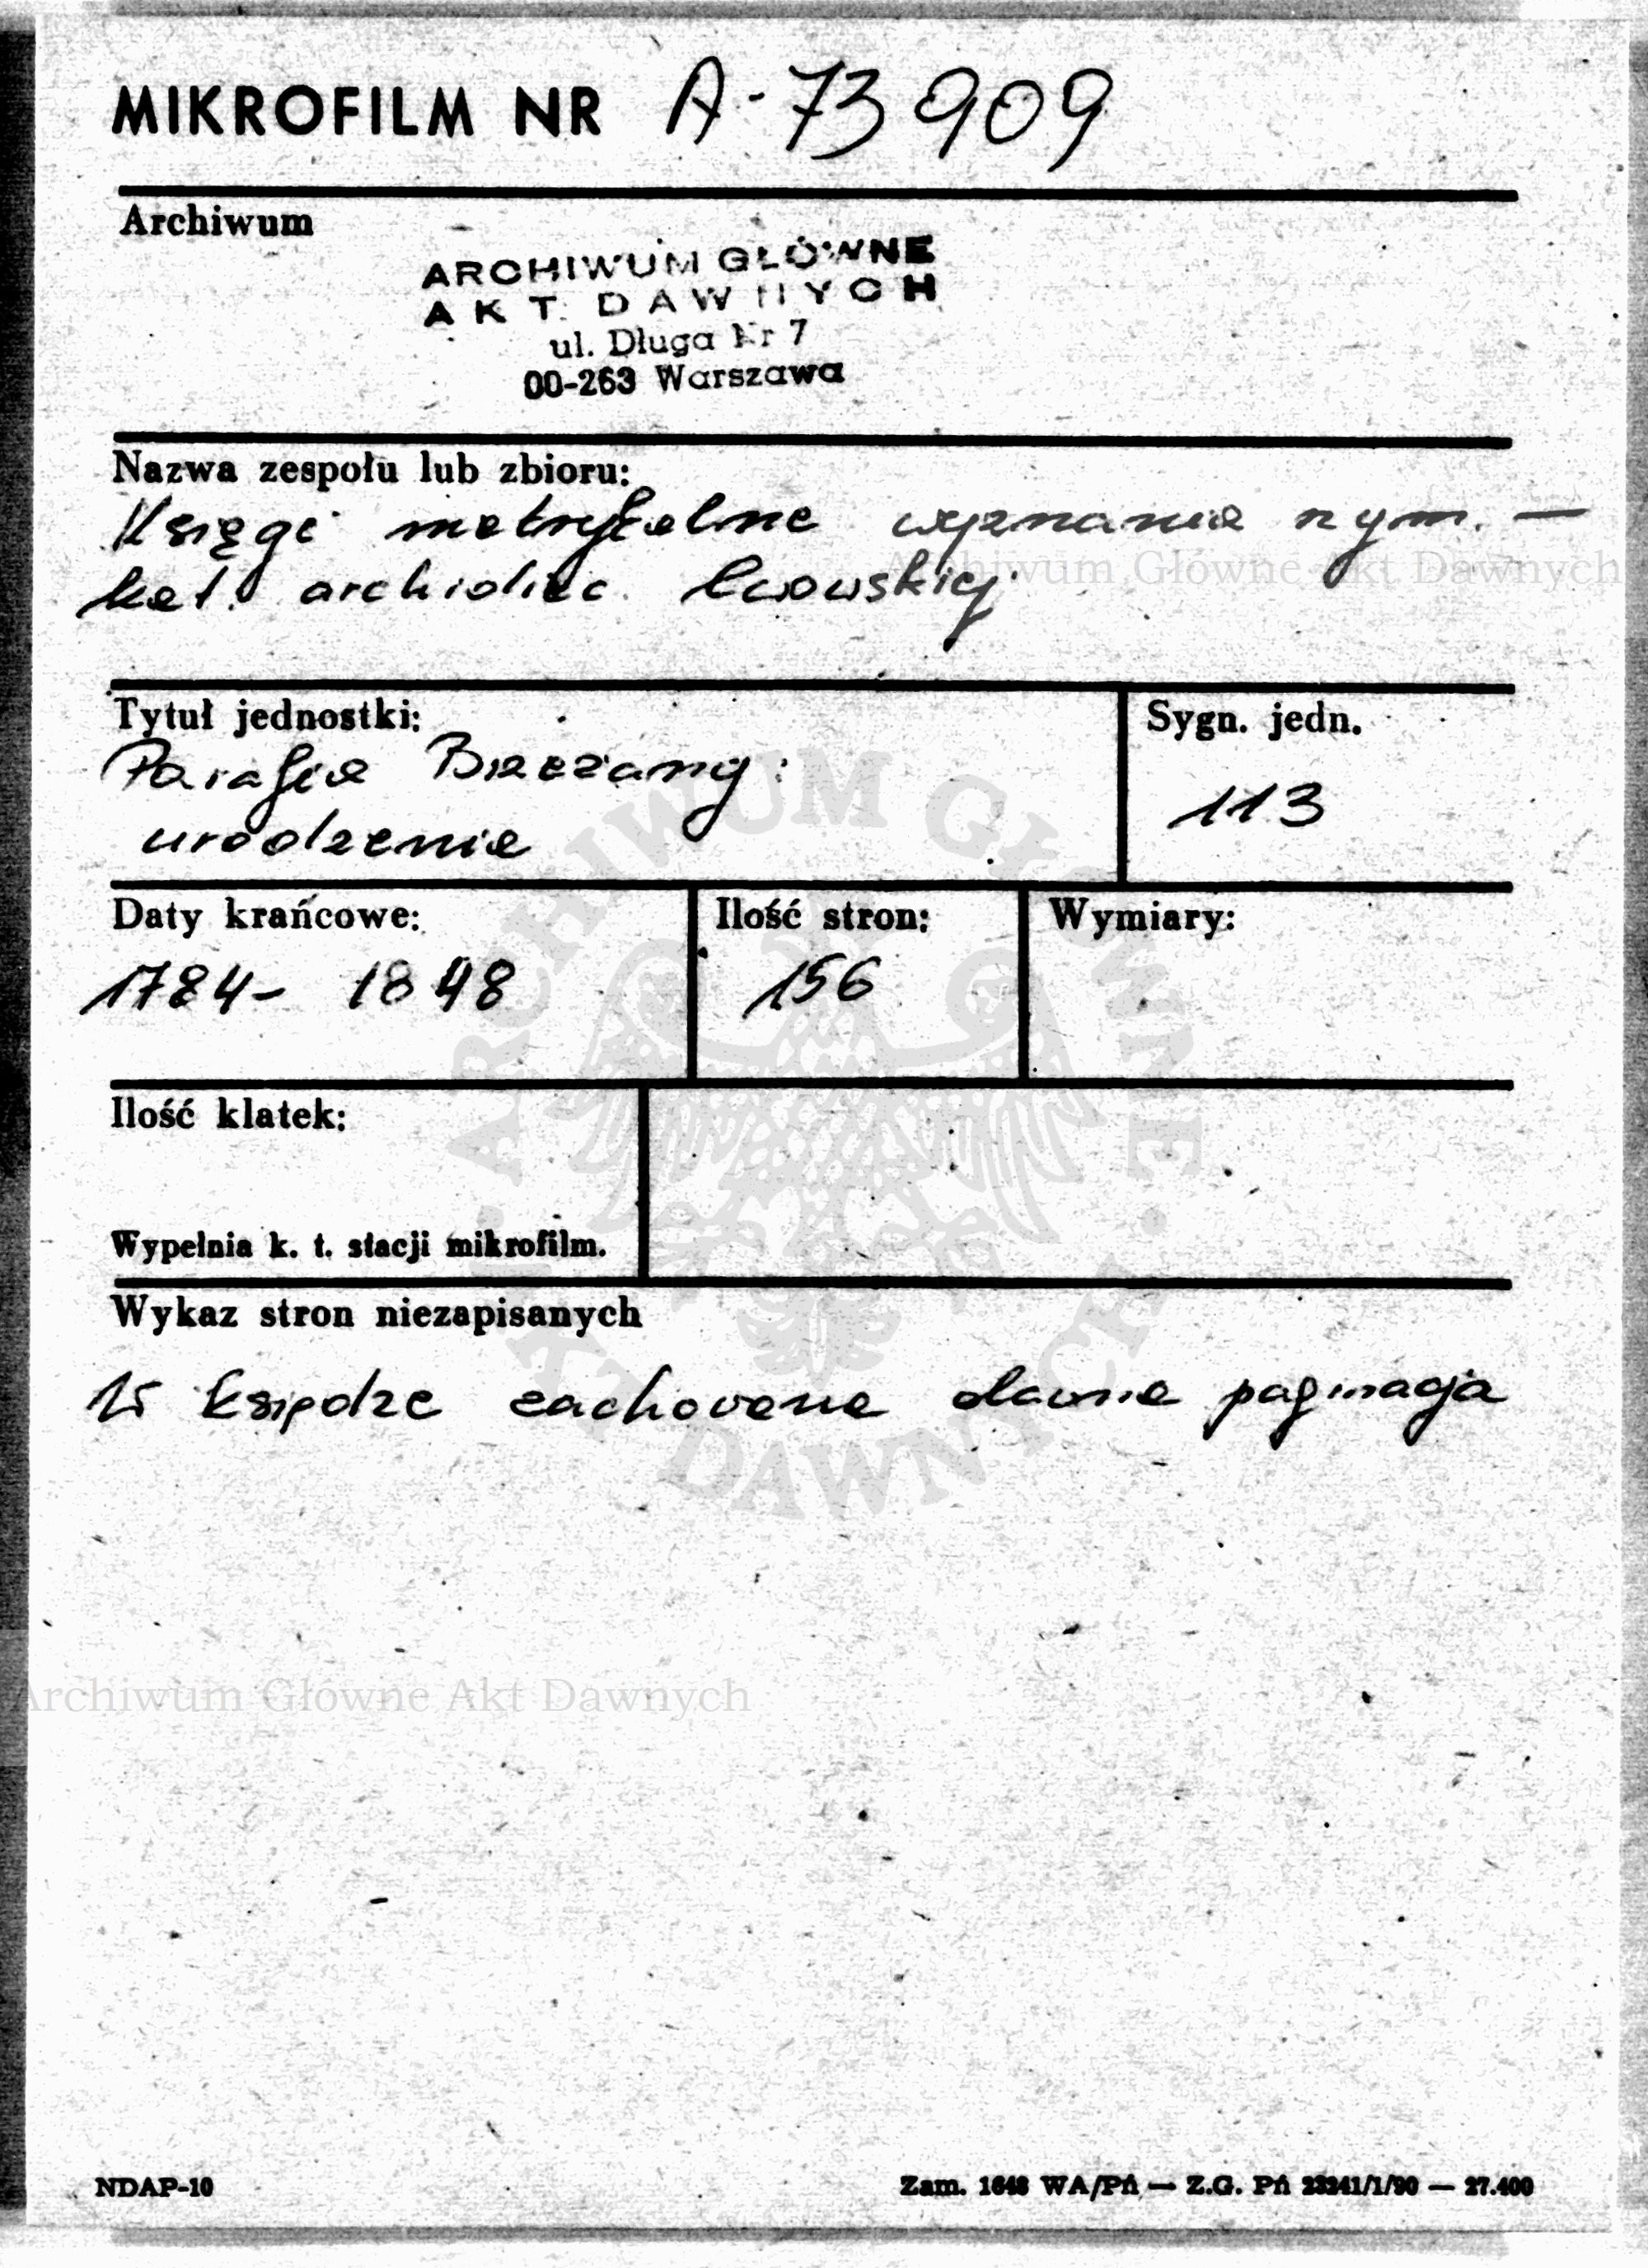 MIKROFILM NR A-73909
Archiwum
ARCHIWUM GŁÓWNE
AKT DAWNYCH
ul. Długa Nr 7
00-263 Warszawa
Nazwa zespołu lub zbioru:
Księgi metrykalne wyznania rzym. —
kat. archidiec. lwowskiej
Archiwum Główne Akt Dawnych
Tytuł jednostki:
Parafia Brzeżany:
urodzenia
Sygn. jedn.
113
Daty krańcowe:
1784- 1848
Ilość stron:
156
Wymiary:
Ilość klatek:
Wypełnia k. t. stacji mikrofilm.
Wykaz stron niezapisanych
W księdze zachowana dawna paginacja
ARCHIWUM GŁÓWNE AKT DAWNYCH
Archiwum Główne Akt Dawnych
NDAP-10
Zam. 1648 WA/Pń — Z.G. Pń 23241/1/90 — 27.400